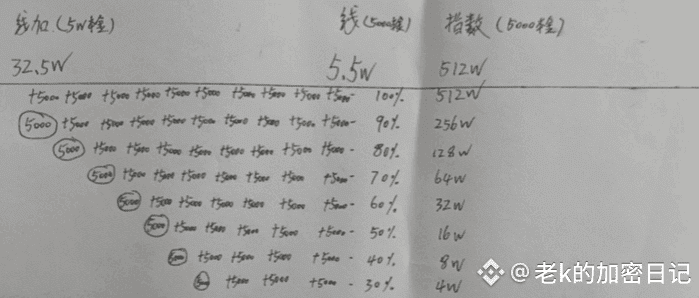 线加(5W) 线(5000) 指数(5000)
32.5W 5.5W 512W
+5000 +5000 +5000 +5000 +5000 +5000 +5000 +5000 +5000 +5000- 100% 512W
5000 +5000 +5000 +5000 +5000 +5000 +5000 +5000 +5000 +5000- 90% 256W
5000 +5000 +5000 +5000 +5000 +5000 +5000 +5000 +5000- 80% 128W
5000 +5000 +5000 +5000 +5000 +5000 +5000 +5000- 70% 64W
5000 +5000 +5000 +5000 +5000 +5000 +5000- 60% 32W
5000 +5000 +5000 +5000 +5000 +5000- 50% 16W
5000 +5000 +5000 +5000 +5000- 40% 8W
5000 +5000 +5000 +5000- 30% 4W
@老k的加密日记